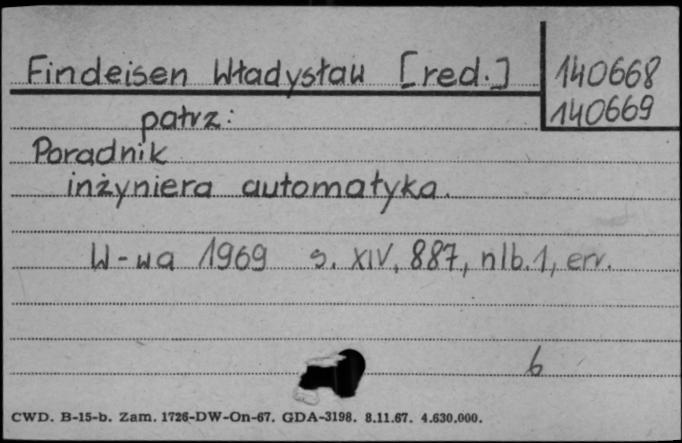 Findeisen Władysław [red.] 140668
140669
patrz:
Poradnik
inżyniera automatyka.
W-wa 1969 s. XIV, 887, nlb.1, err.
6
CWD. B-15-b. Zam. 1726-DW-On-67. GDA-3198. 8.11.67. 4.630.000.